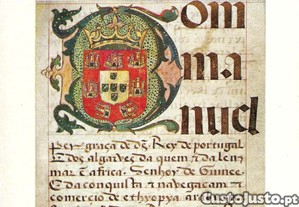 Dom
ma
nuel
per graça de dṡ. Rey de portugal
E dos algarves da quem & da lem
mar Em africa. Senhor de Guinee
E da conquista & navegacam &
comercio de ethyopya
CustoJusto.pt